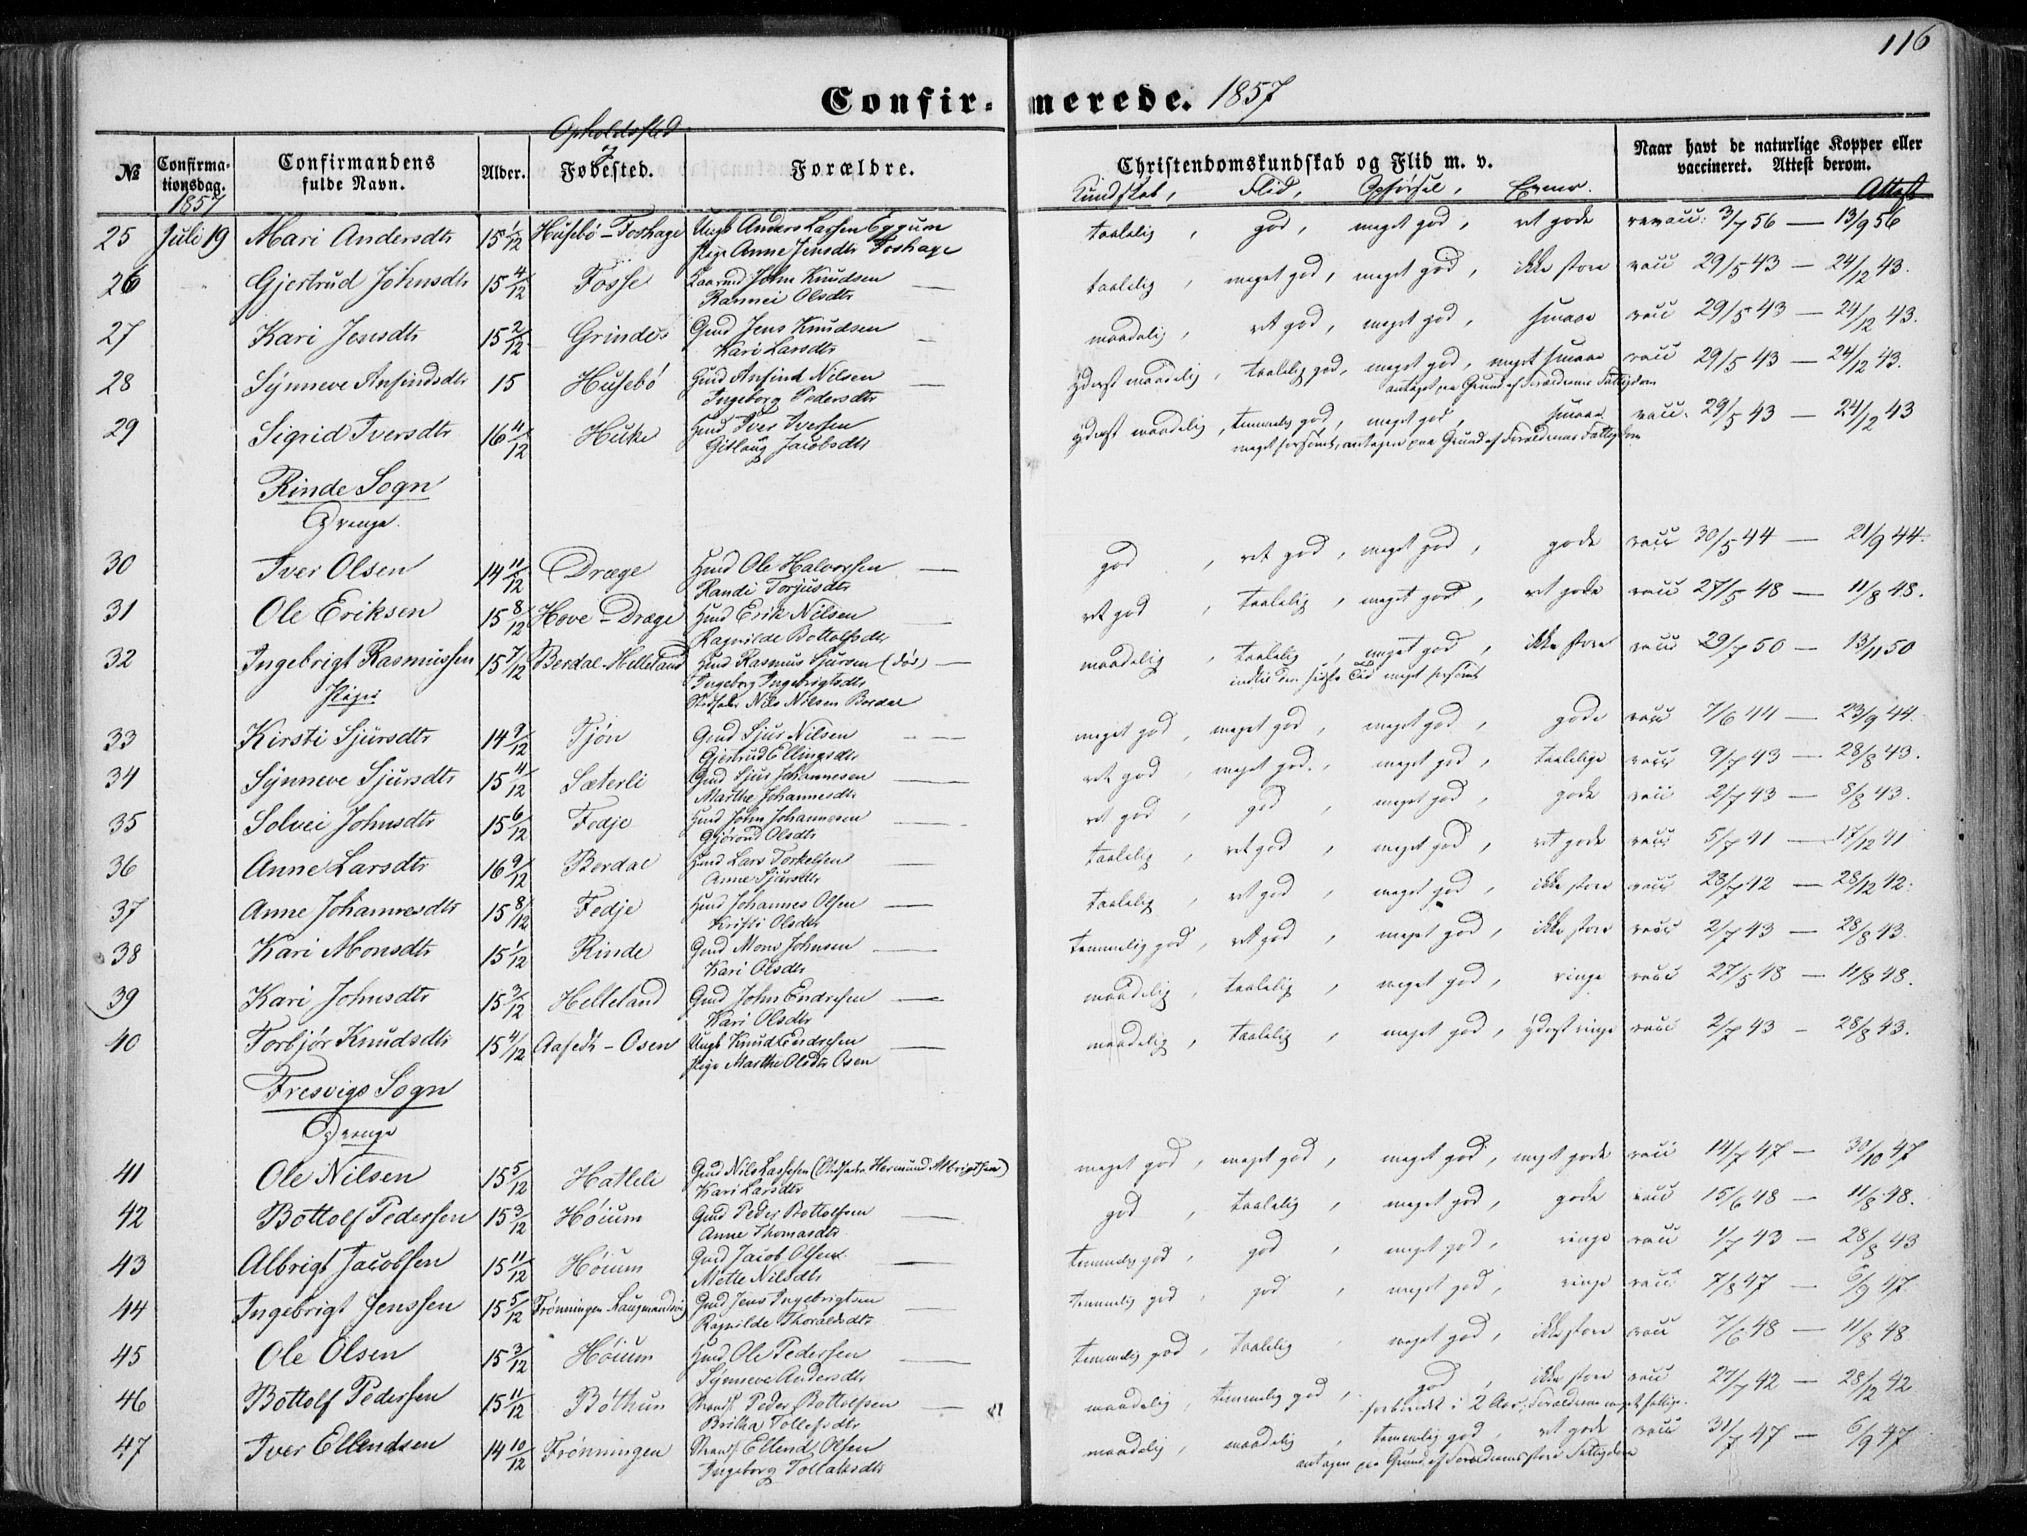 116
Confir- merede. 1857
Opholdssted
&
№ Confirma- tionsdag. Confirmandens fulde Navn. Alder. Fødested. Forældre. Christendomskundskab og Flid m. v. Naar havt de naturlige Kopper eller vaccineret. Attest derom.
1857 Kundskab, Flid, Opførsel, Evner. Attest
25 Juli 19 Mari Andersdtr 15 1/12 Husebö - Foshage Ungk Anders Lassen Eggum taalelig, god, meget god, ret gode revacc: 3/7 56 — 13/9 56
Pige Anne Jensdtr Foshage
26 Gjertrud Johnsdtr 15 4/12 Fosse John Knudsen — taalelig, meget god, meget god, ikke store vacc 29/5 43 — 24/12 43.
Rannei Olsdtr
27 Kari Jensdtr 15 2/12 Grinde Gmd Jens Knudsen — maadelig, ret god, meget god, smaae vacc 29/5 43 — 24/12 43.
Kari Larsdtr
28 Synneve Ansindsdtr 15 Husebö Hmd Ansind Nilsen — yderst maadelig, taalelig god, meget god, meget smaae vacc 29/5 43 — 24/12 43.
Ingeborg Pedersdtr antaget paa Grund af Forældrenes Fattigdom
29 Sigrid Iversdtr 16 11/12 Huke Hmd Iver Iversen yderst maadelig, temmelig god, meget god, smaae vacc. 29/5 43 — 24/12 43
Gitlaug Jacobsdtr meget forsømt, antagen paa Grund af Forældrenes Fattigdom
Rinde Sogn
Drenge.
30 Iver Olsen 14 11/12 Dræge Hmd Ole Halvorsen — god, ret god, meget god, gode vacc 30/5 44 — 21/9 44.
Randi Torjusdtr
31 Ole Eriksen 15 8/12 Hove - Dræge Hmd Erik Nilsen — ret god, taalelig, meget god, ret gode vacc 27/5 48 — 11/8 48.
Ragnilde Bottolfsdtr
32 Ingebrigt Rasmussen 15 7/12 Berdal - Helleland Hmd Rasmus Sjursen (død) — maadelig, taalelig, meget god, ikke store vacc 29/7 50 — 13/11 50
Ingeborg Ingebrigtsdtr indtil den sidste Tid meget forsømt
Piger Stedfader Nils Nilsen Berdal
33 Kirsti Sjursdtr 14 9/12 Tjøn Gmd Sjur Nilsen — meget god, meget god, meget god, gode vacc 7/6 44 — 23/9 44.
Gjertrud Ellingsdtr
34 Synneve Sjursdtr 15 4/12 Sæterli Gmd Sjur Johannesen — ret god meget god, meget god, taalelige vacc 9/7 43 — 28/8 43.
Marthe Johannesdtr
35 Solvei Johnsdtr 15 6/12 Fedje Hmd John Johannesen — ret god, god, meget god, gode vacc 2/7 43 — 8/8 43.
Gjørond Olsdtr
36 Anne Larsdtr 16 9/12 Berdal Hmd Lars Torkelsen — taalelig, ret god, meget god, ret gode vacc 5/7 41 — 17/12 41
Anne Sjursdtr
37 Anne Johannesdtr 15 8/12 Fedje Hmd Johannes Olsen — taalelig, ret god, meget god, ikke store vacc 28/7 42 — 28/12 42.
Kristi Olsdtr
38 Kari Monsdtr 15 1/12 Rinde Gmd Mons Johnsen — temmelig god, ret god, meget god, ikke store vacc 2/7 43 — 28/8 43.
Kari Olsdtr
39 Kari Johnsdtr 15 3/12 Helleland Gmd John Endresen — maadelig, taalelig, meget god, ringe vacc 27/5 48 — 11/8 48.
Kari Olsdtr
40 Torbjør Knudsdtr 15 4/12 Aafedt - Osen Ungk Knud Endresen — maadelig, taalelig, meget god, yderst ringe vacc 2/7 43 - 28/8 43.
Pige Marthe Olsdtr Osen
Fresvigs Sogn
Drenge
41 Ole Nilsen 15 5/12 Hatleli Gmd Nils Lassesen (Stedfader Hermund Albrigtsen) meget god, meget god, meget god, meget gode vacc 14/7 47 — 30/10 47
Kari Larsdtr
42 Bottolf Pedersen 15 3/12 Høium Gmd Peder Bottolfsen — god, taalelig, meget god, gode vacc 15/6 48 — 11/8 48.
Anne Thomasdtr
43 Albrigt Jacobsen 15 11/12 Høium Gmd Jacob Olsen — temmelig god, god, meget god, ringe vacc 1/7 43 — 28/8 43
Mette Nilsdtr
44 Ingebrigt Jenssen 15 5/12 Frønningen Gmd Jens Ingebrigtsen — temmelig god, god, meget god, ringe vacc 7/8 47 — 6/9 47.
Ragnilde Thoraldsdtr
45 Ole Olsen 15 3/12 Høium Hmd Ole Pedersen — temmelig god, taalelig meget god, ikke store vacc 7/6 48 — 11/8 48
Synneve Andersdtr
46 Bottolf Pedersen 15 11/12 Böthun Strands. Peder Bottolfsen — maadelig, temmelig god, god, ikke store vacc 27/7 42 — 28/12 42
Britha Tollefsdtr forberedt i 2 Aar, Forældrene meget fattige.
47 Iver Ellendsen 14 10/12 Frønningen Strands. Ellend Olsen maadelig, maadelig, temmelig god, ret gode vacc 31/7 47 — 6/9 47
Ingeborg Tollaksdtr antagen paa Grund af Forældrenes store Fattigdom